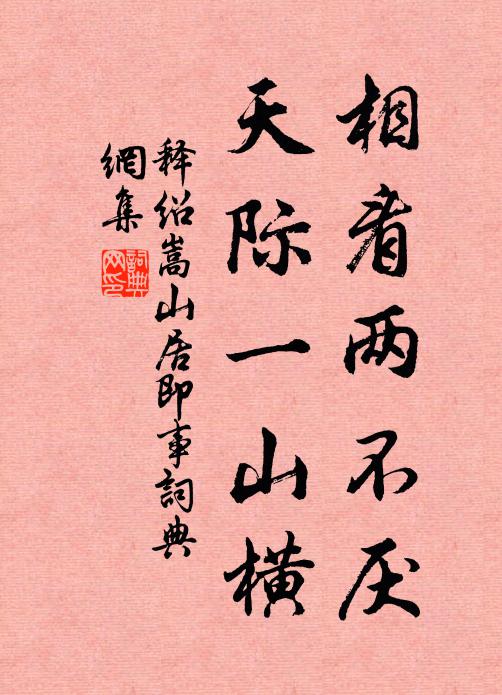 相看两不厌
天际一山横
释绍嵩山居即事词典
網集
詞典
网印